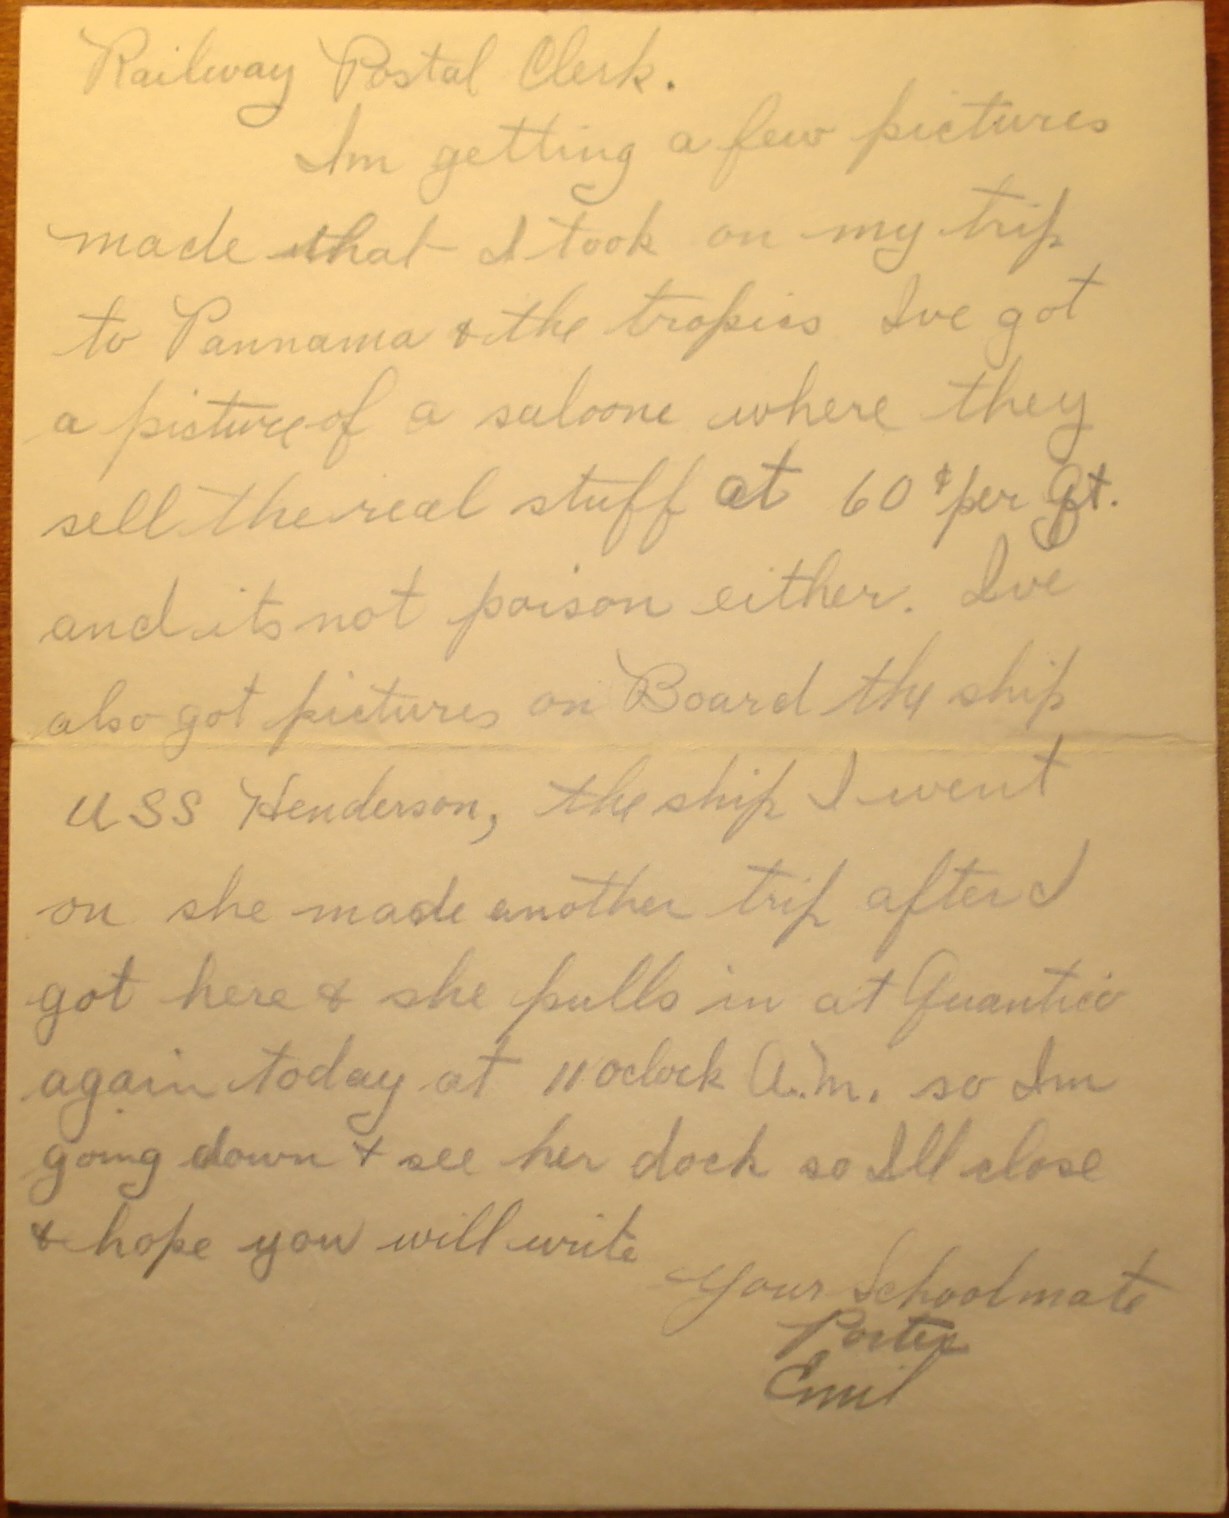 Railway Postal Clerk.
Im getting a few pictures
made that I took on my trip
to Pannama & the tropics Ive got
a picture of a saloone where they
sell the real stuff at 60¢ per Qt.
and its not poison either. Ive
also got pictures on Board the ship
USS Henderson, the ship I went
on she made another trip after I
got here & she pulls in at Quantico
again today at 11 oclock A.M. so Im
going down & see her dock so Ill close
& hope you will write
Your Schoolmate
Porter
Emil